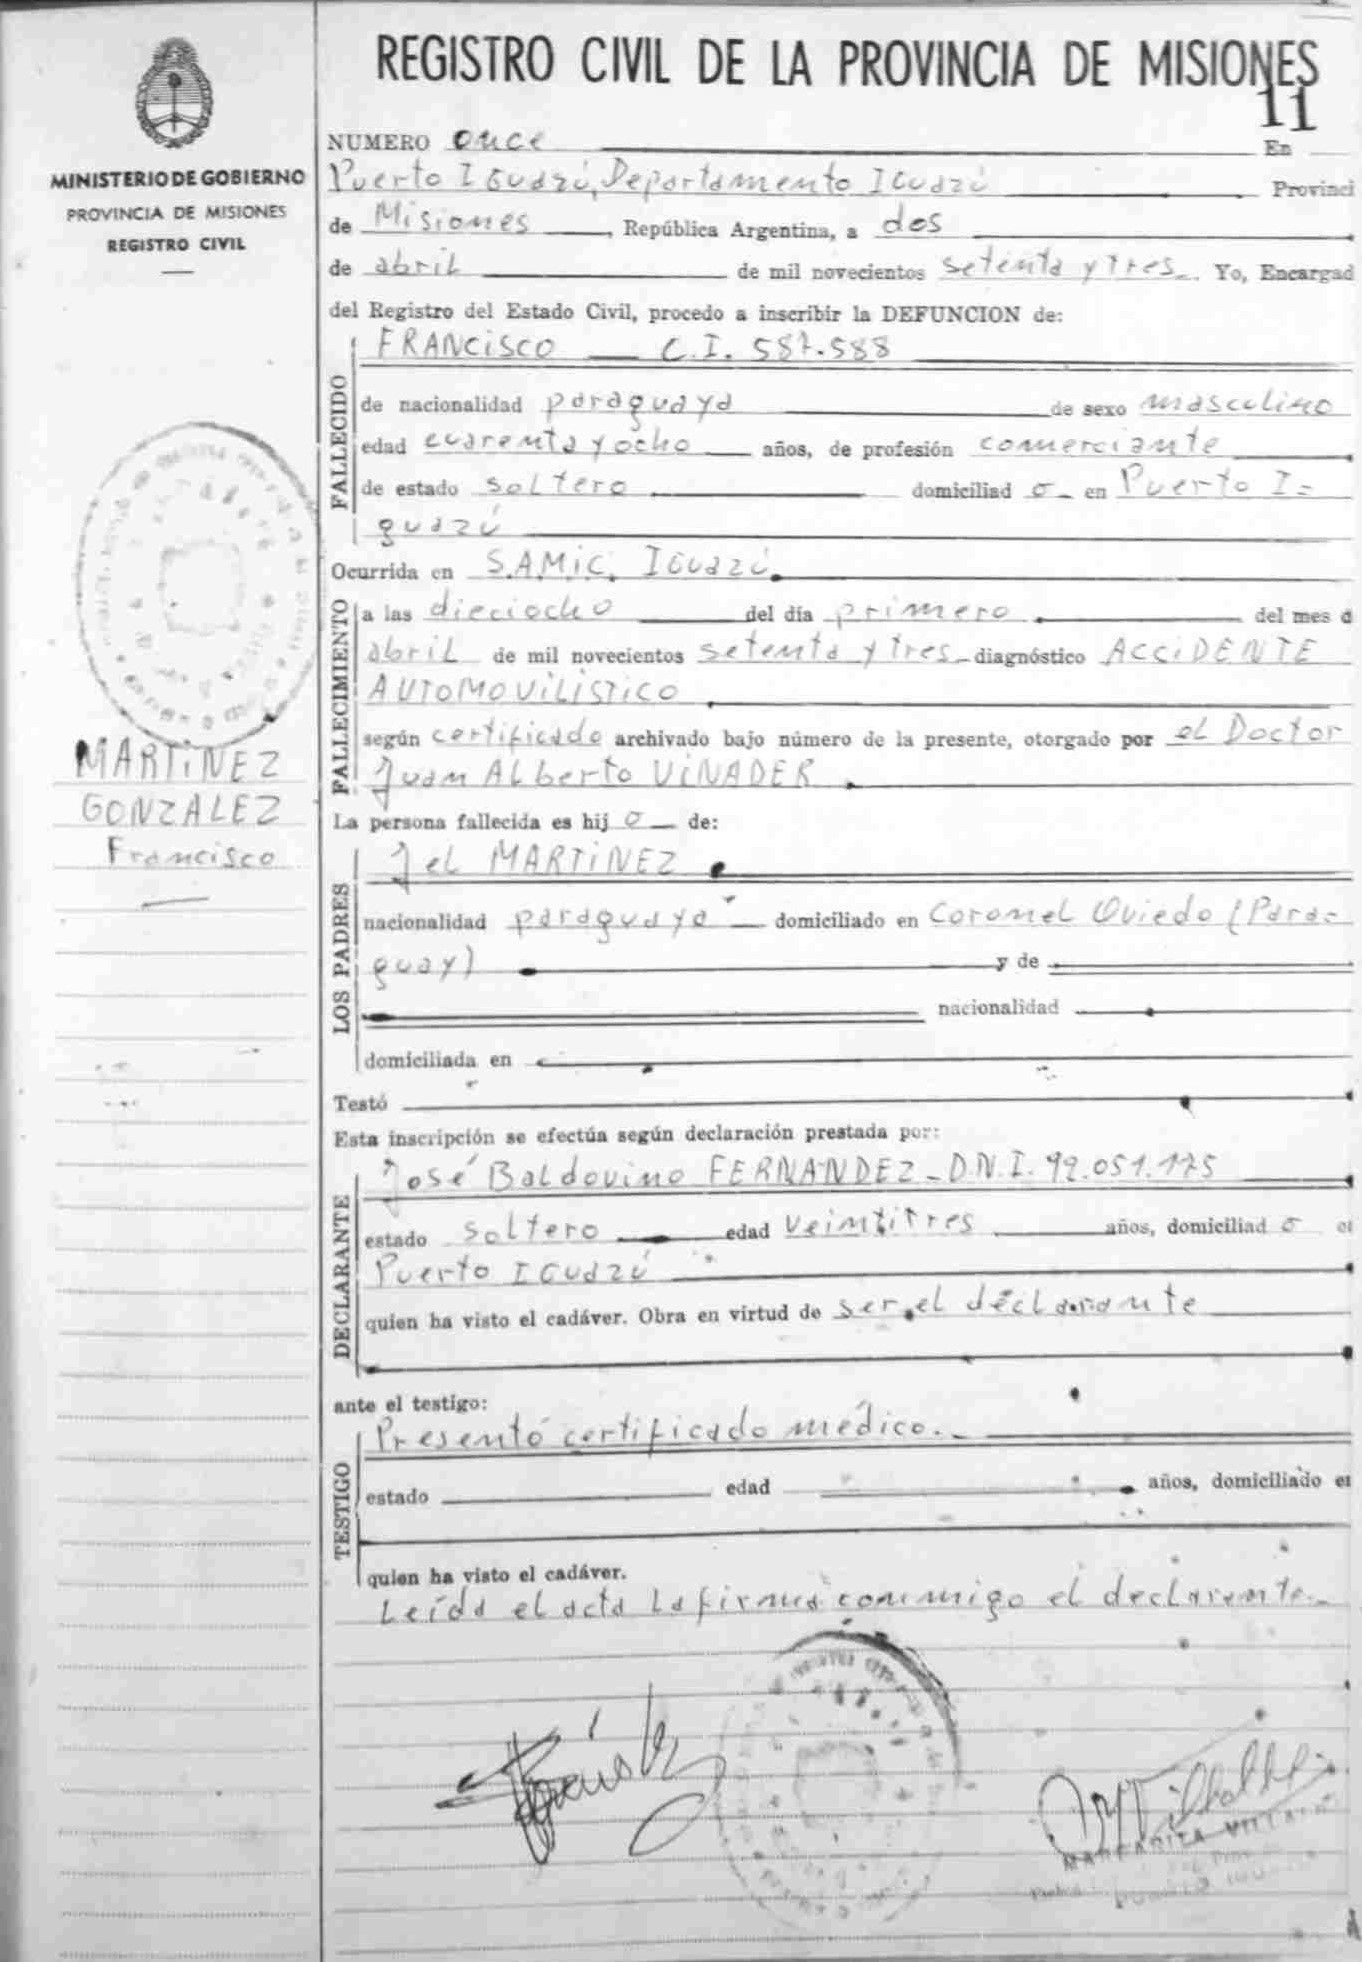 REGISTRO CIVIL DE LA PROVINCIA DE MISIONES
11
MINISTERIO DE GOBIERNO
PROVINCIA DE MISIONES
REGISTRO CIVIL
NUMERO once En
Puerto IGuazú, Departamento IGuazú Provinci
de Misiones, República Argentina, a dos
de abril de mil novecientos setenta y tres. Yo, Encargad
del Registro del Estado Civil, procedo a inscribir la DEFUNCION de:
FALLECIDO
FRANCISCO C.I. 587.588
de nacionalidad paraguaya de sexo masculino
edad cuarenta y ocho años, de profesión comerciante
de estado soltero domiciliad o en Puerto I=
guazú
Ocurrida en S.A.M.i.C. IGuazú.
FALLECIMIENTO
a las dieciocho del día primero del mes d
abril de mil novecientos setenta y tres diagnóstico ACCIDENTE
AUTOMOVILISTICO
según certificado archivado bajo número de la presente, otorgado por el Doctor
Juan ALberto VINADER
MARTINEZ
GONZALEZ
Francisco
La persona fallecida es hij o de:
LOS PADRES
MARTINEZ
nacionalidad paraguaya domiciliado en Coronel Oviedo (Para=
guay) y de
nacionalidad
domiciliada en
Testó
Esta inscripción se efectúa según declaración prestada por:
DECLARANTE
José Baldovino FERNANDEZ - D.N.I. 92.051.175
estado soltero edad veintitres años, domiciliad o
Puerto IGuazú
quien ha visto el cadáver. Obra en virtud de ser el declarante
ante el testigo:
TESTIGO
Presentó certificado médico.
estado edad años, domiciliado
quien ha visto el cadáver.
Leída el acta La firma conmigo el declarante
MARGARITA